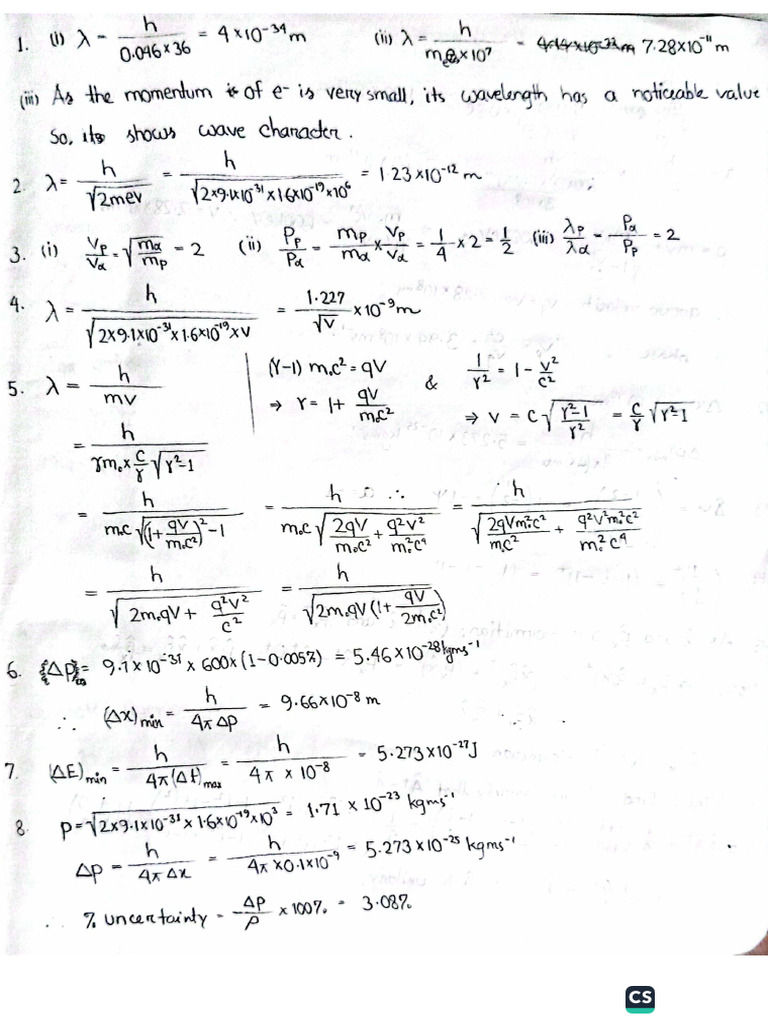 1. (i) λ = h / (0.046×36) = 4×10⁻³⁴ m (ii) λ = h / (mₑ×10⁷) = 7.28×10⁻¹¹ m
(iii) As the momentum of e⁻ is very small, its wavelength has a noticeable value
So, it shows wave character.
2. λ = h / √(2meV) = h / √(2×9.1×10⁻³¹×1.6×10⁻¹⁹×10⁶) = 1.23×10⁻¹² m
3. (i) Vp/Vα = √(mα/mp) = 2 (ii) Pp/Pα = mp/mα × Vp/Vα = 1/4 × 2 = 1/2 (iii) λp/λα = Pα/Pp = 2
4. λ = h / √(2×9.1×10⁻³¹×1.6×10⁻¹⁹×V) = 1.227/√V × 10⁻⁹ m
5. λ = h / mv | (γ-1) m₀c² = qV & 1/γ² = 1 - v²/c²
⇒ γ = 1 + qV/m₀c² ⇒ v = c√((γ²-1)/γ²) = c/γ √(γ²-1)
= h / (γm₀ × c/γ √(γ²-1))
= h / (m₀c √((1 + qV/m₀c²)² - 1)) = h / (m₀c √(2qV/m₀c² + q²V²/m₀²c⁴)) = h / √(2qVm₀²c²/m₀c² + q²V²m₀²c²/m₀²c⁴)
= h / √(2m₀qV + q²V²/c²) = h / √(2m₀qV (1 + qV/2m₀c²))
6. Δp = 9.1×10⁻³¹ × 600×(1-0.005%) = 5.46×10⁻²⁸ kgms⁻¹
∴ (Δx)min = h / (4π Δp) = 9.66×10⁻⁸ m
7. (ΔE)min = h / (4π(Δt)max) = h / (4π × 10⁻⁸) = 5.273×10⁻²⁷ J
8. p = √(2×9.1×10⁻³¹×1.6×10⁻¹⁹×10³) = 1.71 × 10⁻²³ kgms⁻¹
Δp = h / (4π Δx) = h / (4π×0.1×10⁻⁹) = 5.273×10⁻²⁵ kgms⁻¹
∴ % uncertainty = Δp/p × 100% = 3.08%
CS